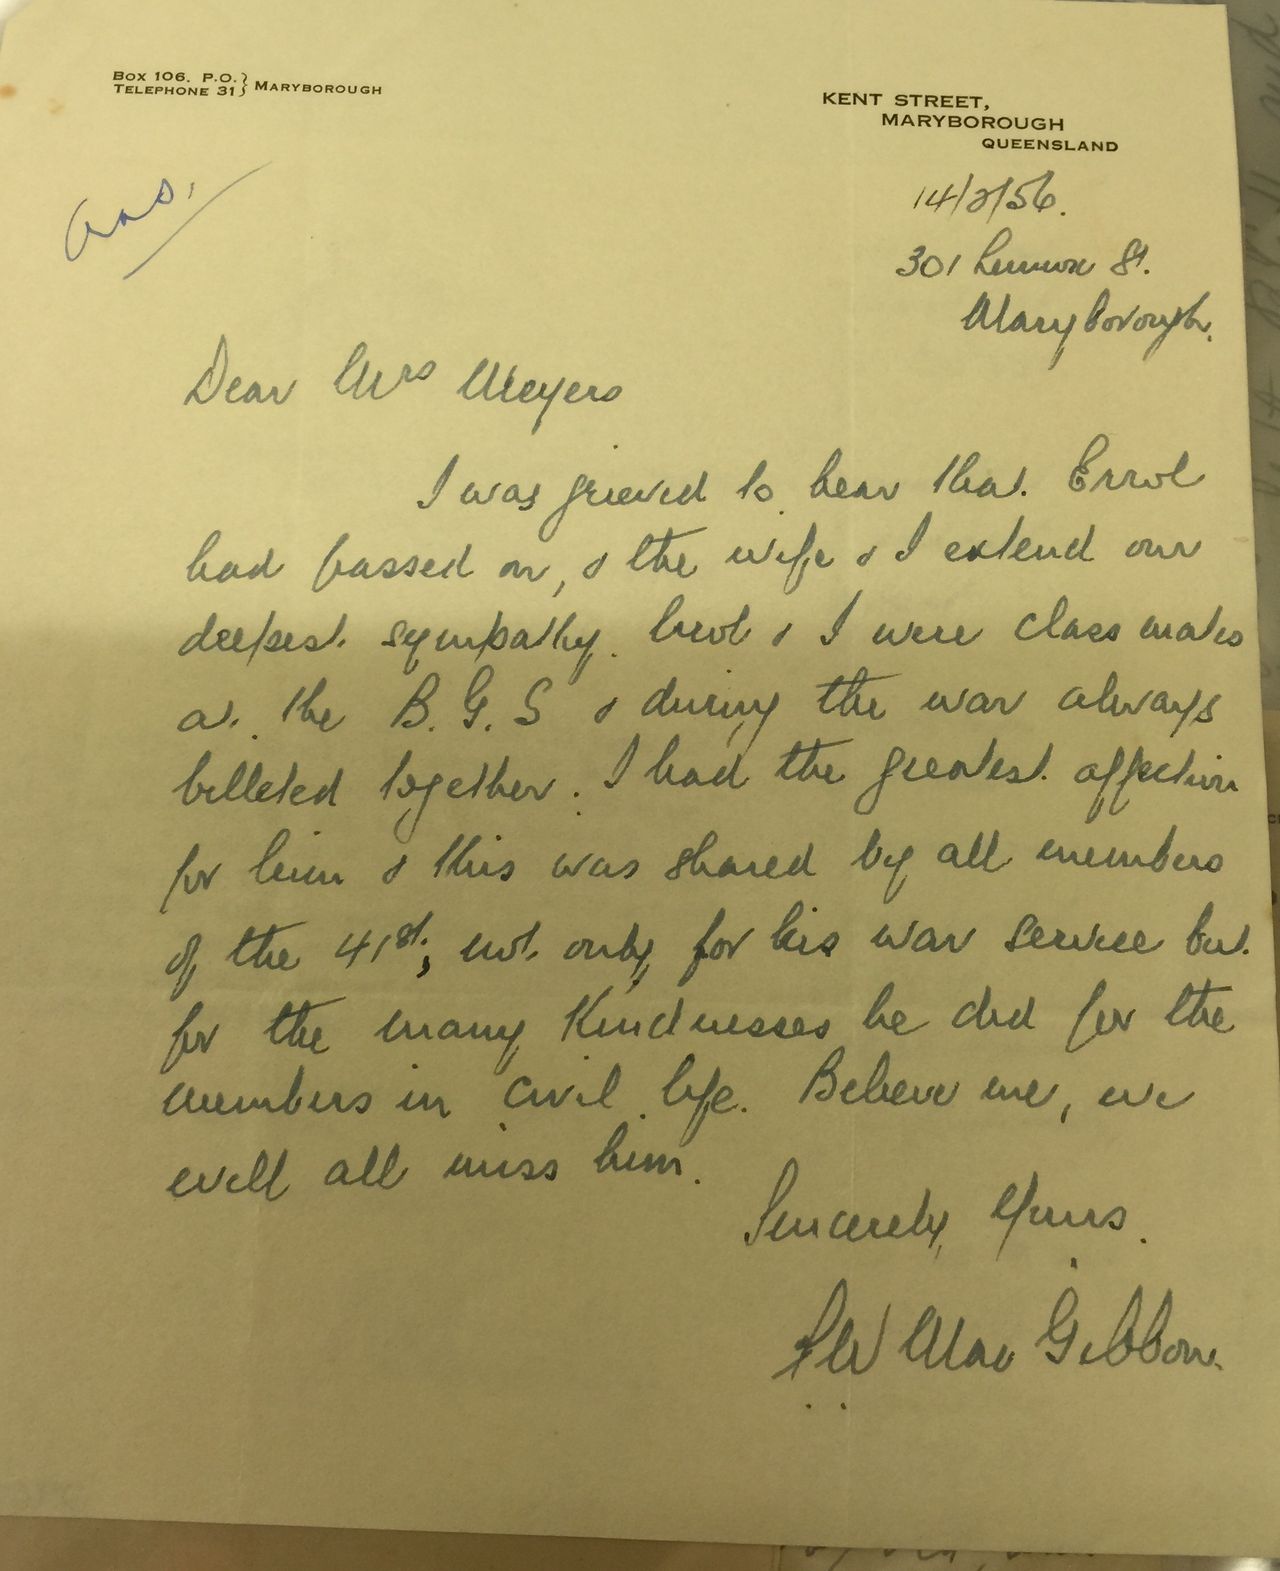 BOX 106. P.O.} MARYBOROUGH
TELEPHONE 31}
KENT STREET,
MARYBOROUGH
QUEENSLAND
Ans.
14/2/56.
301 Lennox St.
Maryborough.
Dear Mrs Meyers
I was grieved to hear that Errol
had passed on, & the wife & I extend our
deepest sympathy. Errol & I were class mates
at the B.G.S & during the war always
billeted together. I had the greatest affection
for him & this was shared by all members
of the 41st; not only for his war service but
for the many Kindnesses he did for the
members in civil life. Believe me, we
will all miss him.
Sincerely Yours.
Mac Gibbon.